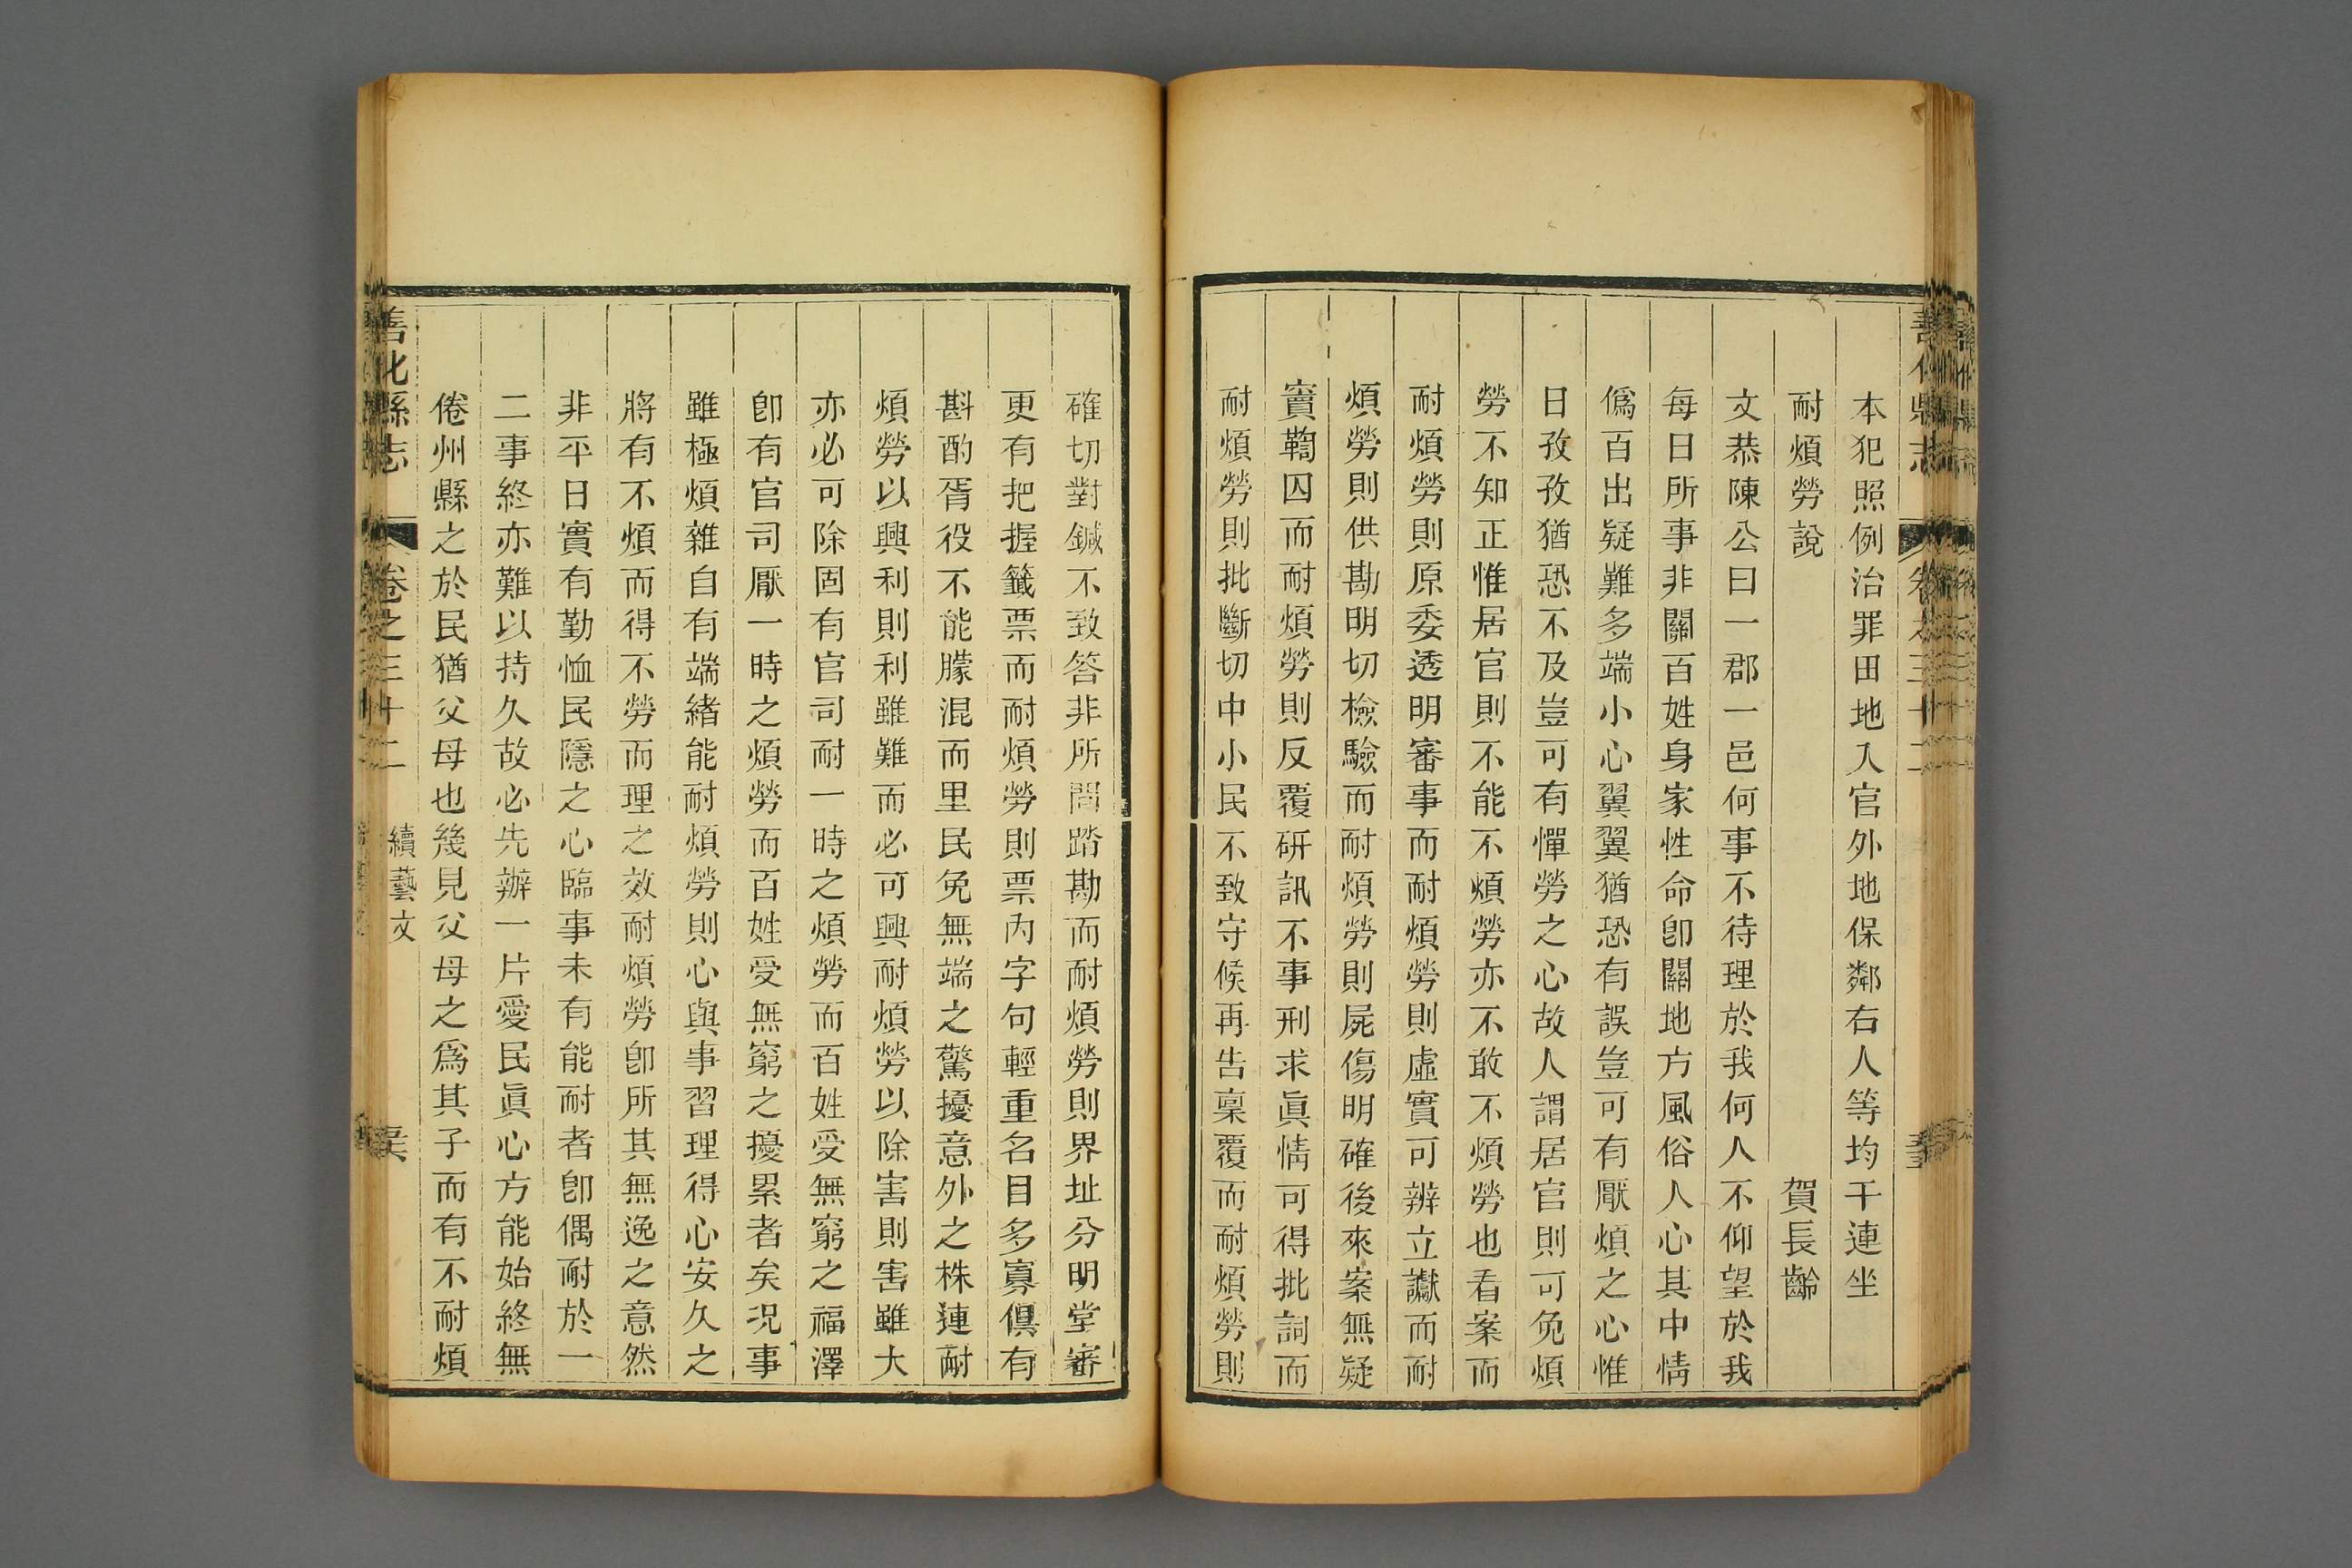 本犯照例治罪田地入官外地保鄰右人等均干連坐
耐煩勞說
賀長齡
文恭陳公曰一郡一邑何事不待理於我何人不仰望於我
每日所事非關百姓身家性命卽關地方風俗人心其中情
僞百出疑難多端小心翼翼猶恐有誤豈可有厭煩之心惟
日孜孜猶恐不及豈可有憚勞之心故人謂居官則可免煩
勞不知正惟居官則不能不煩勞亦不敢不煩勞也看案而
耐煩勞則原委透明審事而耐煩勞則虛實可辨立讞而耐
煩勞則供勘明切檢驗而耐煩勞則屍傷明確後來案無疑
竇鞫囚而耐煩勞則反覆研訊不事刑求眞情可得批詞而
耐煩勞則批斷切中小民不致守候再告稟覆而耐煩勞則
確切對鍼不致答非所問踏勘而耐煩勞則界址分明堂審
更有把握籤票而耐煩勞則票內字句輕重名目多寡俱有
斟酌胥役不能朦混而里民免無端之驚擾意外之株連耐
煩勞以興利則利雖難而必可興耐煩勞以除害則害雖大
亦必可除固有官司耐一時之煩勞而百姓受無窮之福澤
卽有官司厭一時之煩勞而百姓受無窮之擾累者矣況事
雖極煩雜自有端緒能耐煩勞則心與事習理得心安久之
將有不煩而得不勞而理之效耐煩勞卽所其無逸之意然
非平日實有勤恤民隱之心臨事未有能耐者卽偶耐於一
二事終亦難以持久故必先辦一片愛民眞心方能始終無
倦州縣之於民猶父母也幾見父母之爲其子而有不耐煩
善化縣志
卷之三十二
續藝文